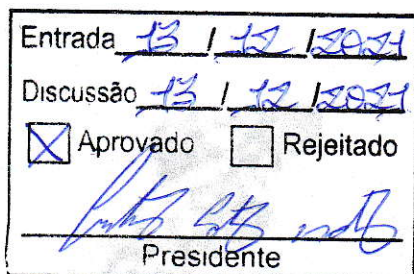 Entrada 13 / 12 / 2021
Discussão 13 / 12 / 2021
☒ Aprovado ☐ Rejeitado
Presidente